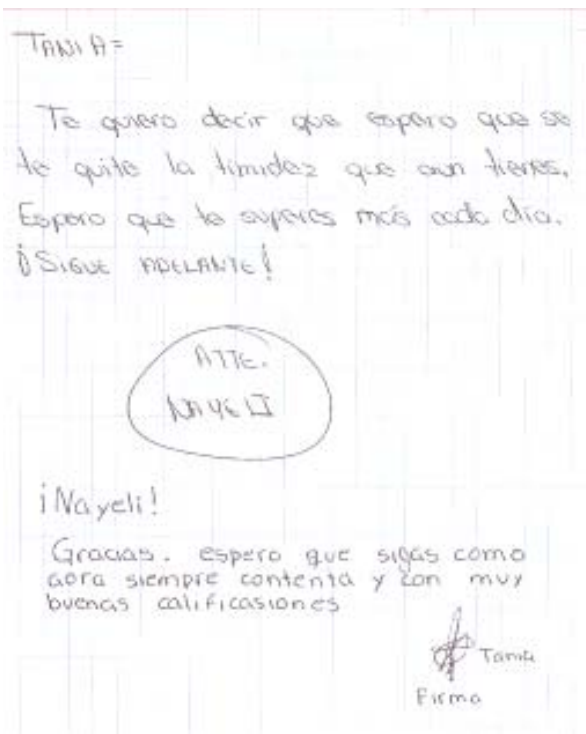 TANIA=
Te quiero decir que espero que se
te quite la timidez que aun tienes.
Espero que te superes más cada día.
¡SIGUE ADELANTE!
ATTE.
NAYELI
¡Nayeli!
Gracias. espero que sigas como
aora siempre contenta y con muy
buenas calificasiones
Tania
Firma